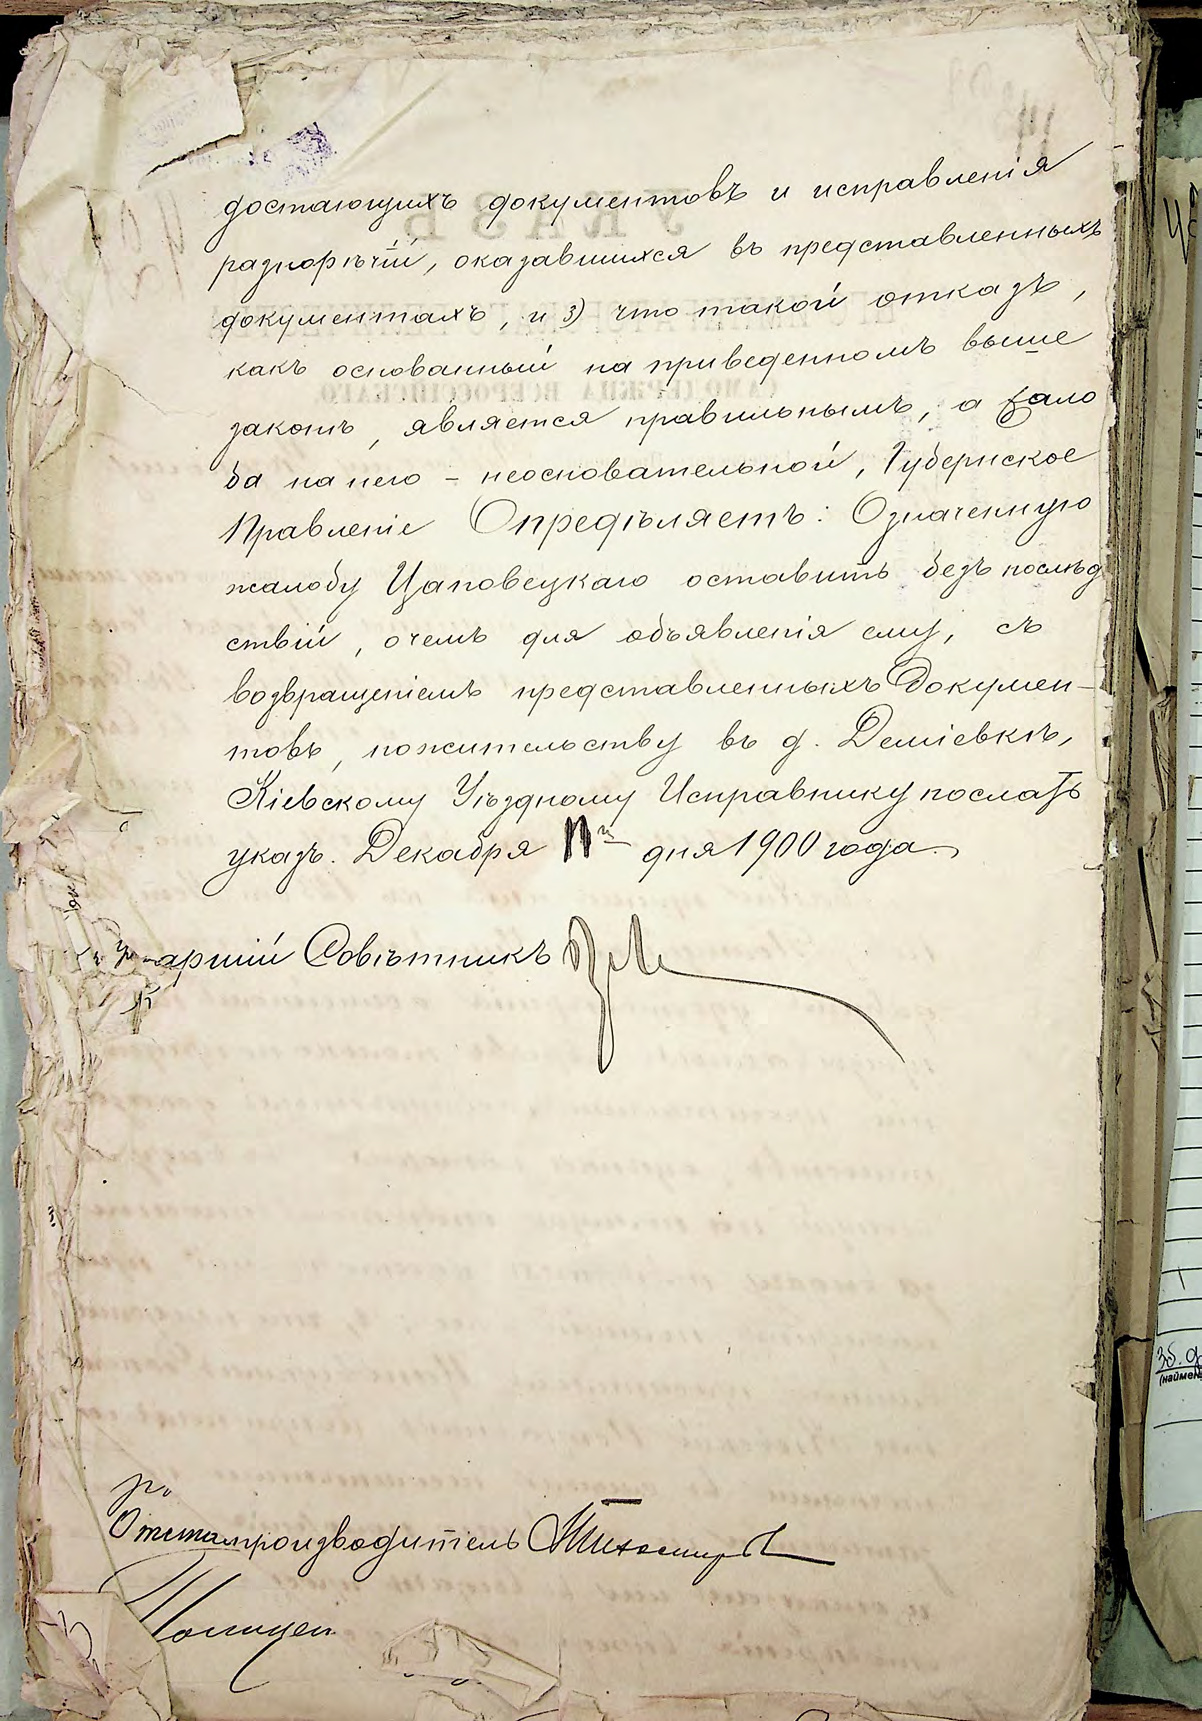 достающихъ документовъ и исправленія
разнорѣчій, оказавшихся въ представленныхъ
документахъ, и 3) что такой отказъ,
какъ основанный на приведенномъ выше
законѣ, является правильнымъ, а жало
ба на него - неосновательной, Губернское
Правленіе Опредѣляетъ: Означенную
жалобу Цаповецкаго оставить безъ послѣд
ствій, о чемъ для объявленія ему, съ
возвращеніемъ представленныхъ докумен-
товъ, по жительству въ д. Деміевкѣ,
Кіевскому Уѣздному Исправнику послать
указъ. Декабря 11го дня 1900 года.
Старшій Совѣтникъ
дѣлопроизводитель